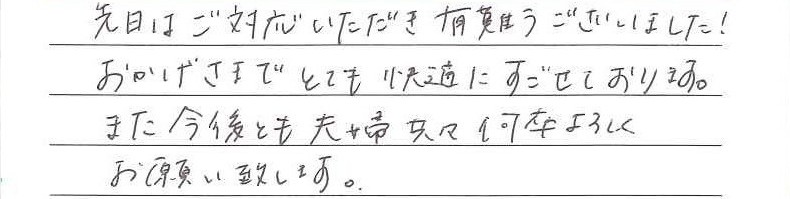 先日はご対応いただき有難うございました!
おかげさまでとても快適にすごせております。
また今後とも夫婦共々何卒よろしく
お願い致します。